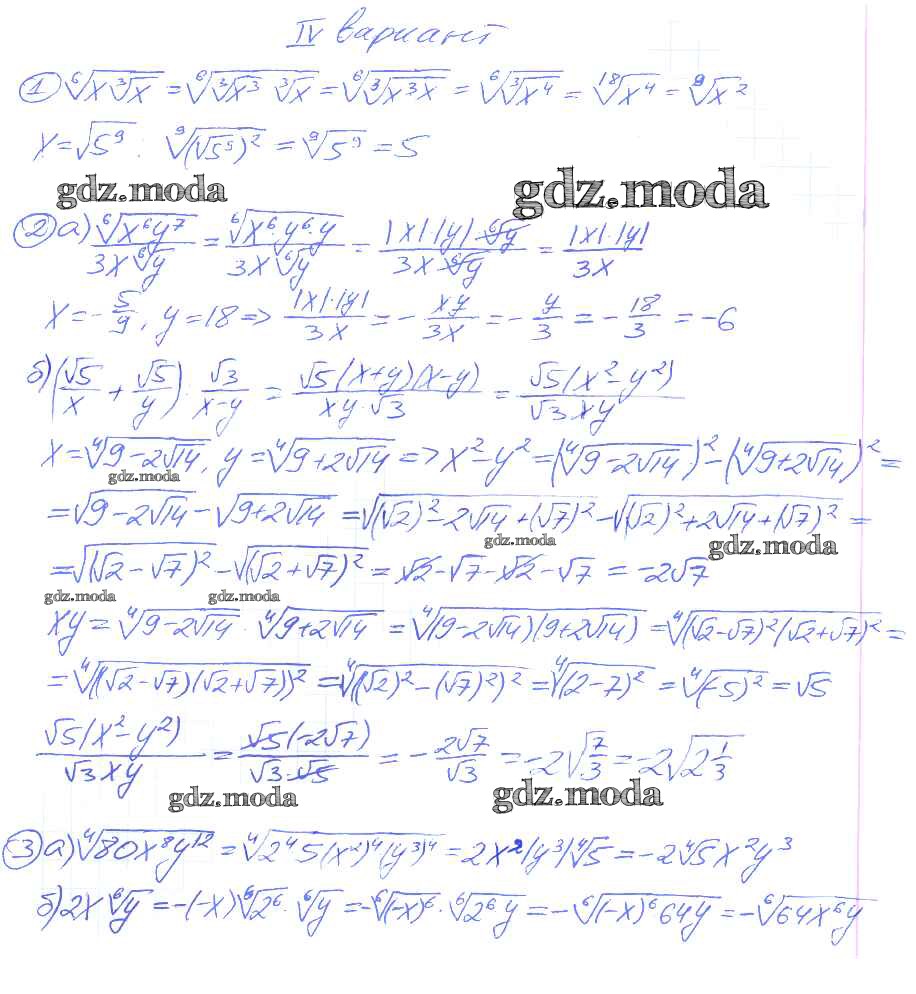 IV вариант
① ⁶√(x∛x) = ⁶√(∛x³ ∛x) = ⁶√(∛(x³x)) = ⁶√(∛x⁴) = ¹⁸√x⁴ = ⁹√x²
x = √5⁹ : ⁹√((√5⁹)²) = ⁹√5⁹ = 5
gdz.moda gdz.moda
② а) ⁶√(x⁶y⁷)/(3x⁶√y) = ⁶√(x⁶·y⁶·y)/(3x⁶√y) = |x|·|y|·⁶√y/(3x·⁶√y) = |x|·|y|/(3x)
x = -5/9, y = 18 => |x|·|y|/(3x) = -xy/(3x) = -y/3 = -18/3 = -6
б) (√5/x + √5/y) · √3/(x-y) = √5(x+y)(x-y)/(xy·√3) = √5(x²-y²)/(√3·xy)
x = ⁴√(9-2√14), y = ⁴√(9+2√14) => x²-y² = (⁴√(9-2√14))² - (⁴√(9+2√14))² =
gdz.moda
= √(9-2√14) - √(9+2√14) = √((√2)²-2√14+(√7)²) - √((√2)²+2√14+(√7)²) =
gdz.moda gdz.moda
= √((√2-√7)²) - √((√2+√7)²) = √2-√7-√2-√7 = -2√7
gdz.moda gdz.moda
xy = ⁴√(9-2√14) · ⁴√(9+2√14) = ⁴√((9-2√14)(9+2√14)) = ⁴√((√2-√7)²(√2+√7)²) =
= ⁴√(((√2-√7)(√2+√7))²) = ⁴√(((√2)²-(√7)²)²) = ⁴√((2-7)²) = ⁴√((-5)²) = √5
√5(x²-y²)/(√3xy) = √5(-2√7)/(√3·√5) = -2√7/√3 = -2√(7/3) = -2√(2 1/3)
gdz.moda gdz.moda
③ а) ⁴√(80x⁸y¹²) = ⁴√(2⁴5(x²)⁴(y³)⁴) = 2x²|y³|⁴√5 = -2⁴√5x²y³
б) 2x⁶√y = -(-x)⁶√2⁶·⁶√y = -⁶√((-x)⁶)·⁶√(2⁶y) = -⁶√((-x)⁶64y) = -⁶√(64x⁶y)